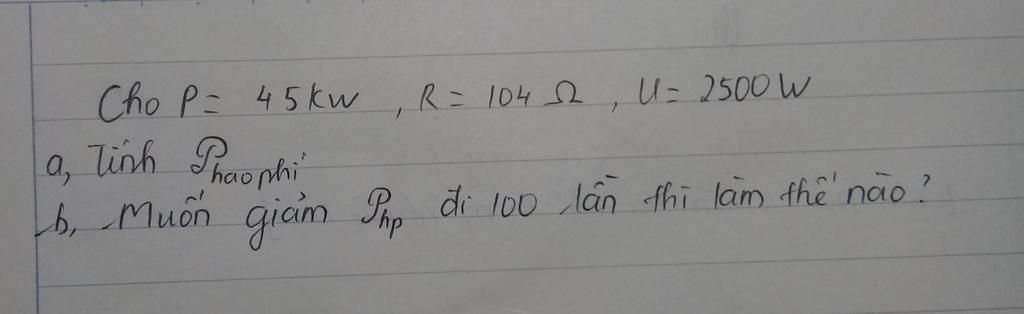 Cho P = 45 Kw , R = 104 Ω , U = 2500 W
a, Tính P hao phí
b, Muốn giảm P hp đi 100 lần thì làm thế nào ?